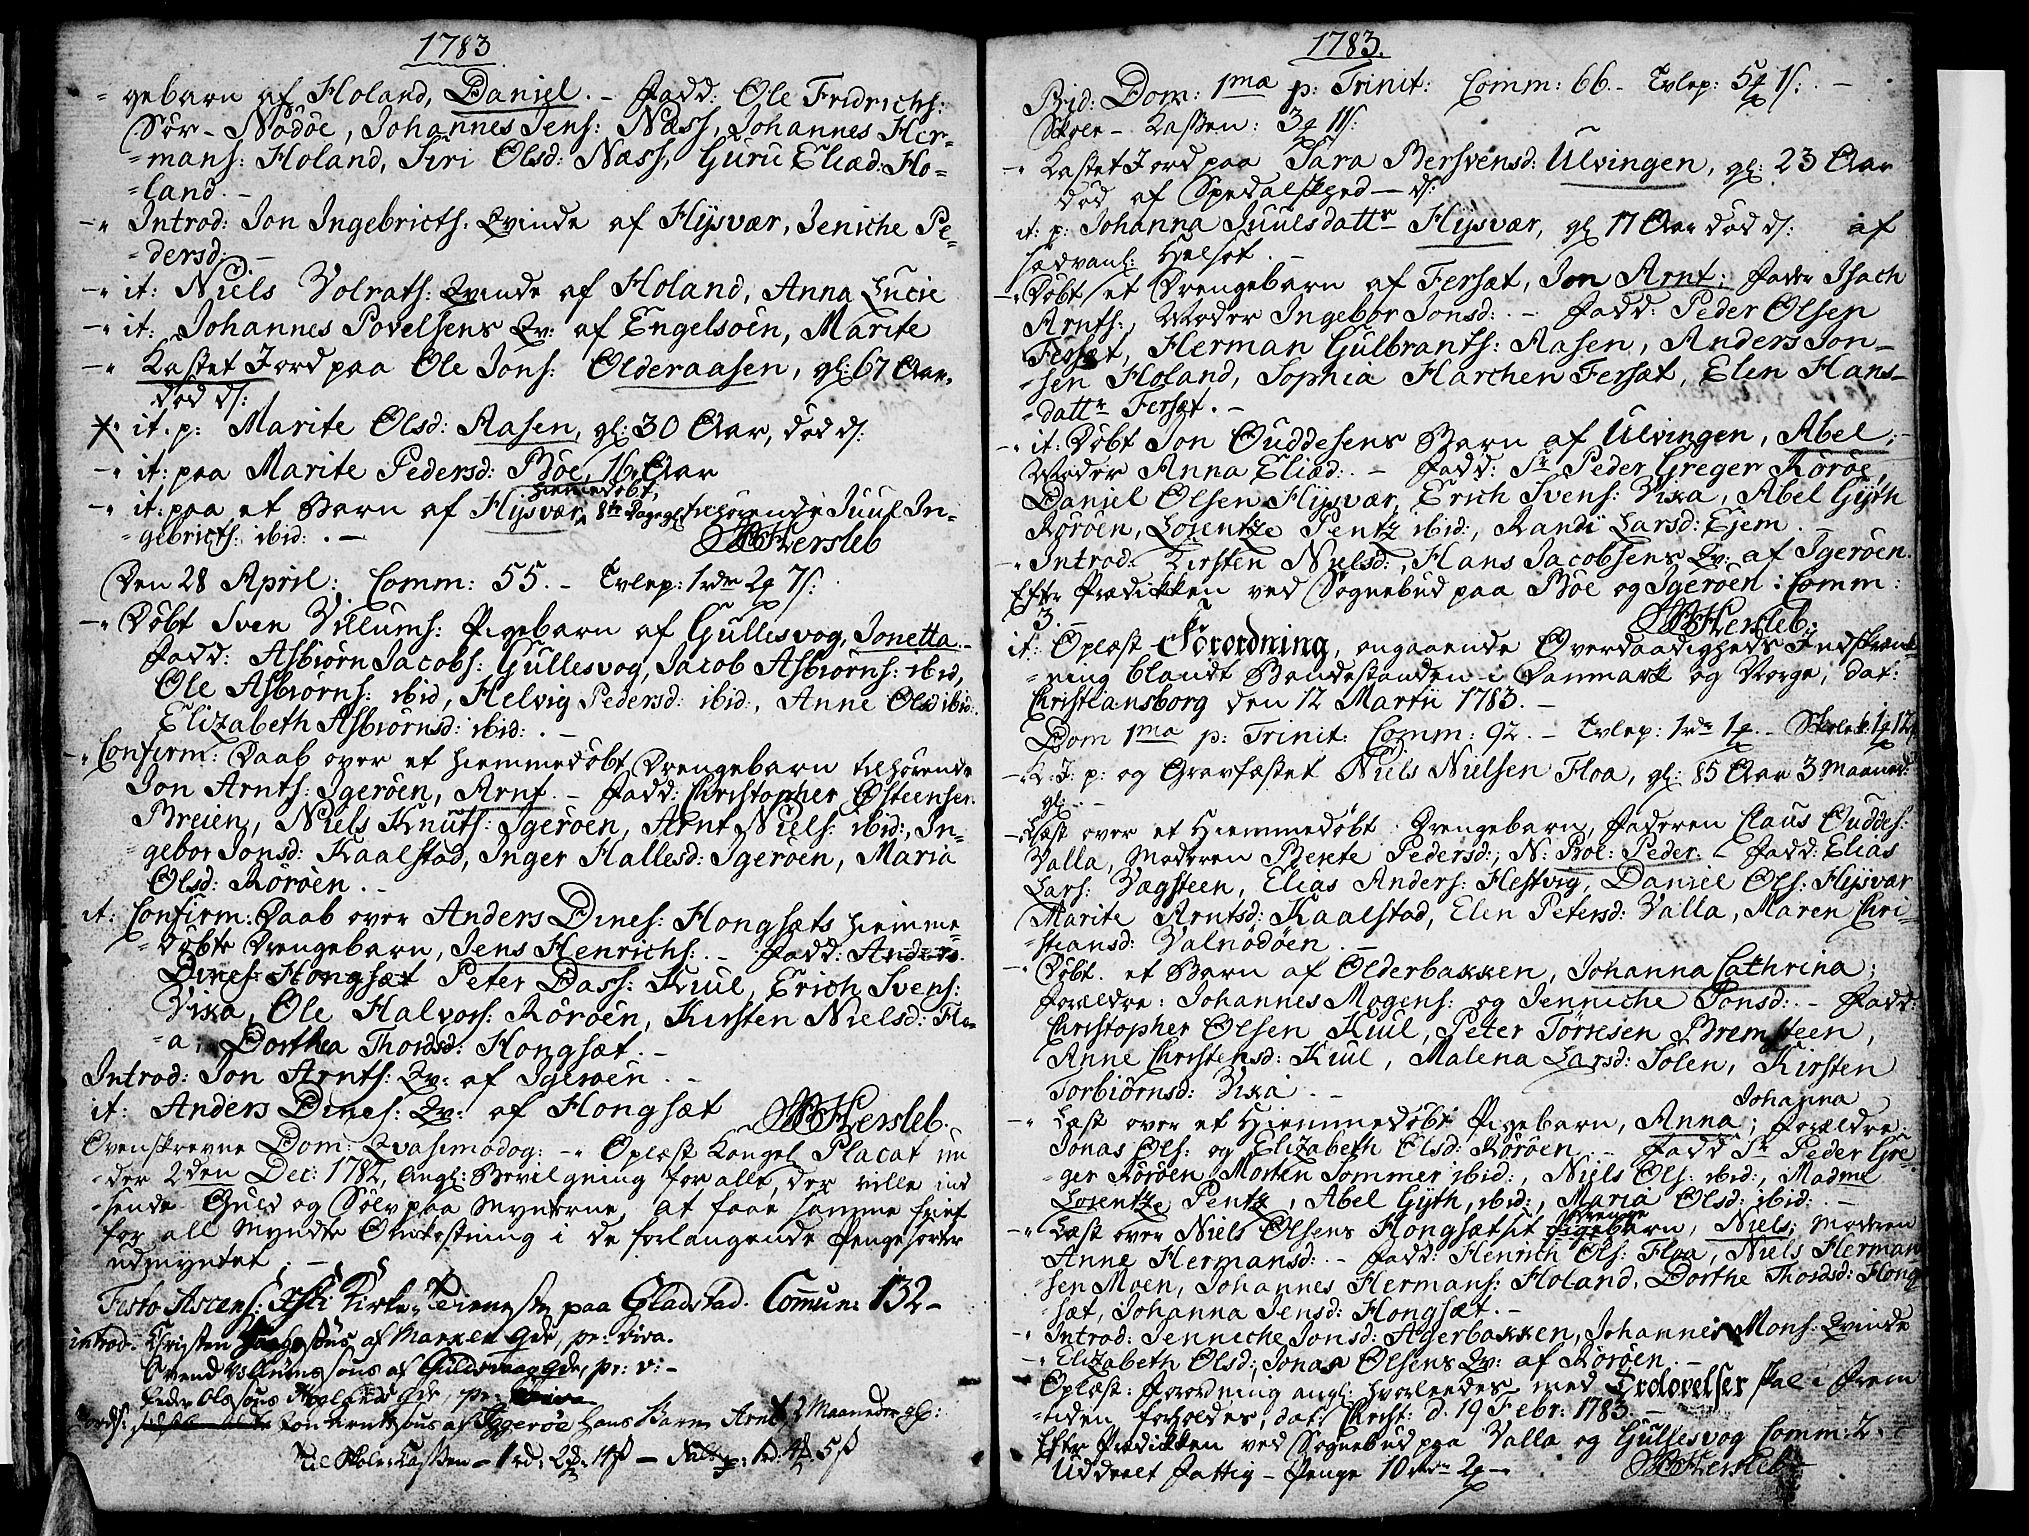 1783
=gebarn af Holand, Daniel. - Fadd: Ole Fridrichs:
Sör-Nödöe, Johannes Jens: Næss, Johannes Her-
=mans: Holand, Siri Olsd: Næss, Guru Eliæd: Ho-
=land. -
-" Introd: Jon Ingebricths. Qvinde af Flysvær, Jeniche Pe-
=dersd: -
-" it: Niels Volraths: Qvinde af Holand, Anna Lucie
-" it: Johannes Povelsens Qv: af Engelsöen, Marite
-" Kastet Jord paa Ole Jons: Olderaasen, gl: 67 Aar,
död ds:
-" it. p: Marite Olsd: Aasen, gl: 30 Aar, död ds:
-" it: paa Marite Pedersd: Böe, 16 Aar
hiemmedöbt,
-" it: paa et Barn af Flysvær, 8te Dage gl: tilhörende Juul In-
=gebricths: ibid: . - Hersleb
Den 28 April: Comm: 55. - Tvlep: 1 rdr 2 7 s:
-" Döbt Sven Villums: Pigebarn af Gullesvog, Jonetta. -
Fadd: Asbiörn Jacobs: Gullesvog, Jacob Asbiörns: ibid,
Ole Asbiörns: ibid, Helvig Pedersd: ibid:, Anne Olsd ibid:
Elizabeth Asbiörnsd: ibid: . -
-" Confirm: Daab over et hiemmedöbt Drengebarn tilhörende
Jon Arnts: Igeröen, Arnt. - Fadd: Christopher Østensen
Breien, Niels Knuts: Igeröen, Arnt Niels: ibid:, In-
=gebor Jonsd: Kaalstad, Inger Hallesd: Igeröen, Maria
Olsd: Röröen. -
it: Confirm: Daab over Anders Dines: Hongsæts hiemme-
=döbte Drengebarn, Jens Henrichs: . - Fadd: Anders
Dines: Hongsæt Peter Dass: Kuul, Erich Svens:
Vixa, Ole Halvors: Röröen, Kirsten Nielsd: Flo-
=a, Dorthea Thordsd: Hongsæt. -
Introd: Jon Arnts: Qv: af Igeröen. -
it: Anders Dines: Qv: af Hongsæt Hersleb.
Ovenskrevne Dom: Qvasimodog: -" Oplæst Kongel Placat un
=der 2den Dec: 1782, angl: Bevilgning for alle, der ville ind
=sende Guld og Sölv paa Mynterne, at faae samme friet
for all Myndte Omkostning i de forlangende Penge sorter
udmyntet. -
Festo Ascens: Xsti Kirke-Tieneste paa Gladstad. Comun: 132 -
introd. Christen af Marken Qde, pr: viva.
Svend Villumssöns af Guldsvaag Qde, pr: v: -
Peder Olssöns Holand Qde, pr: viva
Jon Arntssöns af Iggeröe hans Barn Arnt 2 Maaneder gl:
Til Skole-Kassen - 1 rd: 2 14 ß - : 1 rd: 4 5 ß
1783.
Bid: Dom: 1ma p: Trinit: Comm: 66. - Tvlep: 5 1 s: -
Skole-Kassen: 3 11 s:
-" Kastet Jord paa Sara Bersvensd: Ulvingen, gl: 23 Aar
död af Spedalskhed - ds:
it: p: Johanna Juulsdattr Flysvær, gl 17 Aar död ds: af
sædvanl: Helsot. -
-" Döbt et Drengebarn af Fersæt, Jon Arnt; Fader Isach
Arnts:, Moder Ingebor Jonsd: . - Fadd: Peder Olsen
Fersæt, Herman Gulbrants: Aasen, Anders Jon-
=sen Holand, Sophia Harchen Fersæt, Elen Hans-
=dattr Fersæt. -
-" it: Döbt Jon Ouddesens Barn af Ulvingen, Abel; -
Moder Anna Eliæd: . - Fadd: Sr Peder Greger Röröe,
Daniel Olsen Flysvær, Erich Svens: Vixa, Abel Gyth
Röröen, Lorentze Pentz ibid:, Randi Larsd: Ejem. -
-" Introd: Kirsten Nielsd:, Hans Jacobsens Qv: af Igeröen.
Eftr Prædikken ved Sognebud paa Böe og Igeröen: Comm:
3. - Hersleb.
it: Oplæst Forordning, angaaende Overdaadigheds Indskrænk
=ning blandt Bondestanden i Danmark og Norge, dat:
Christiansborg den 12 Martii 1783. -
Dom 1ma p: Trinit: Comm: 92. - Tvlep: 1 rdr 1. - Skolek: 1 12
-" K: J: p: og Gravfæstet Niels Nielsen Floa, gl: 85 Aar 3 Maaned:
gl. -
-" Læst over et Hiemmedöbt Drengebarn, Faderen Claus Ouddes:
Valla, Moderen Berete Pedersd:, N: Peder. - Fadd: Elias
Lars: Vaagsteen, Elias Anders: Hestvig, Daniel Ols: Flysvær
Marite Arntsd: Kaalstad, Elen Petersd: Valla, Maren Chri-
=stiansd: Valnödöen. -
-" Döbt et Barn af Olderbakken, Johanna Cathrina;
Forældre: Johannes Mogens: og Jenniche Jonsd: . - Fadd:
Christopher Olsen Kuul, Peter Törresen Bremsteen,
Anne Christensd: Kuul, Malena Larsd: Solen, Kirsten
Torbiörnsd: Vixa. -
Johanna
-" Læst over et Hiemmedöbt Pigebarn, Anna; Forældre:
Jonas Ols: og Elizabeth Olsd: Röröen. - Fadd Sr Peder Gre-
=ger Röröen, Morten Sommer ibid:, Niels Ols: ibid:, Madme
Lorentze Pentz, Abel Gyth, ibid:, Maria Olsd: ibid: -
Drenge
-" Læst over Niels Olsens Hongsæts sit Pigebarn, Niels; Moderen
Anne Hermansd: - Fadd: Henrich Ols: Floa, Niels Herman-
=sen Moen, Johannes Hermans: Holand, Dorthe Thordsd: Hong
=sæt, Johanna Jensd: Hongsæt. -
-" Introd: Jenniche Jonsd: Agerbakken, Johannes Mons: Qvinde
-" Elizabeth Olsd:, Jonas Olsens Qv: af Röröen. -
Oplæst: Forordning angl: hvorledes med Trolovelser skal i Frem
=tiden forholdes, dat: Christ: d. 19 Febr: 1783. -
Eftr Prædikken ved Sognebud paa Valla og Gullesvog Comm: 2. -
Uddeelt Fattig-Penge 10 rdr 2 - Hersleb